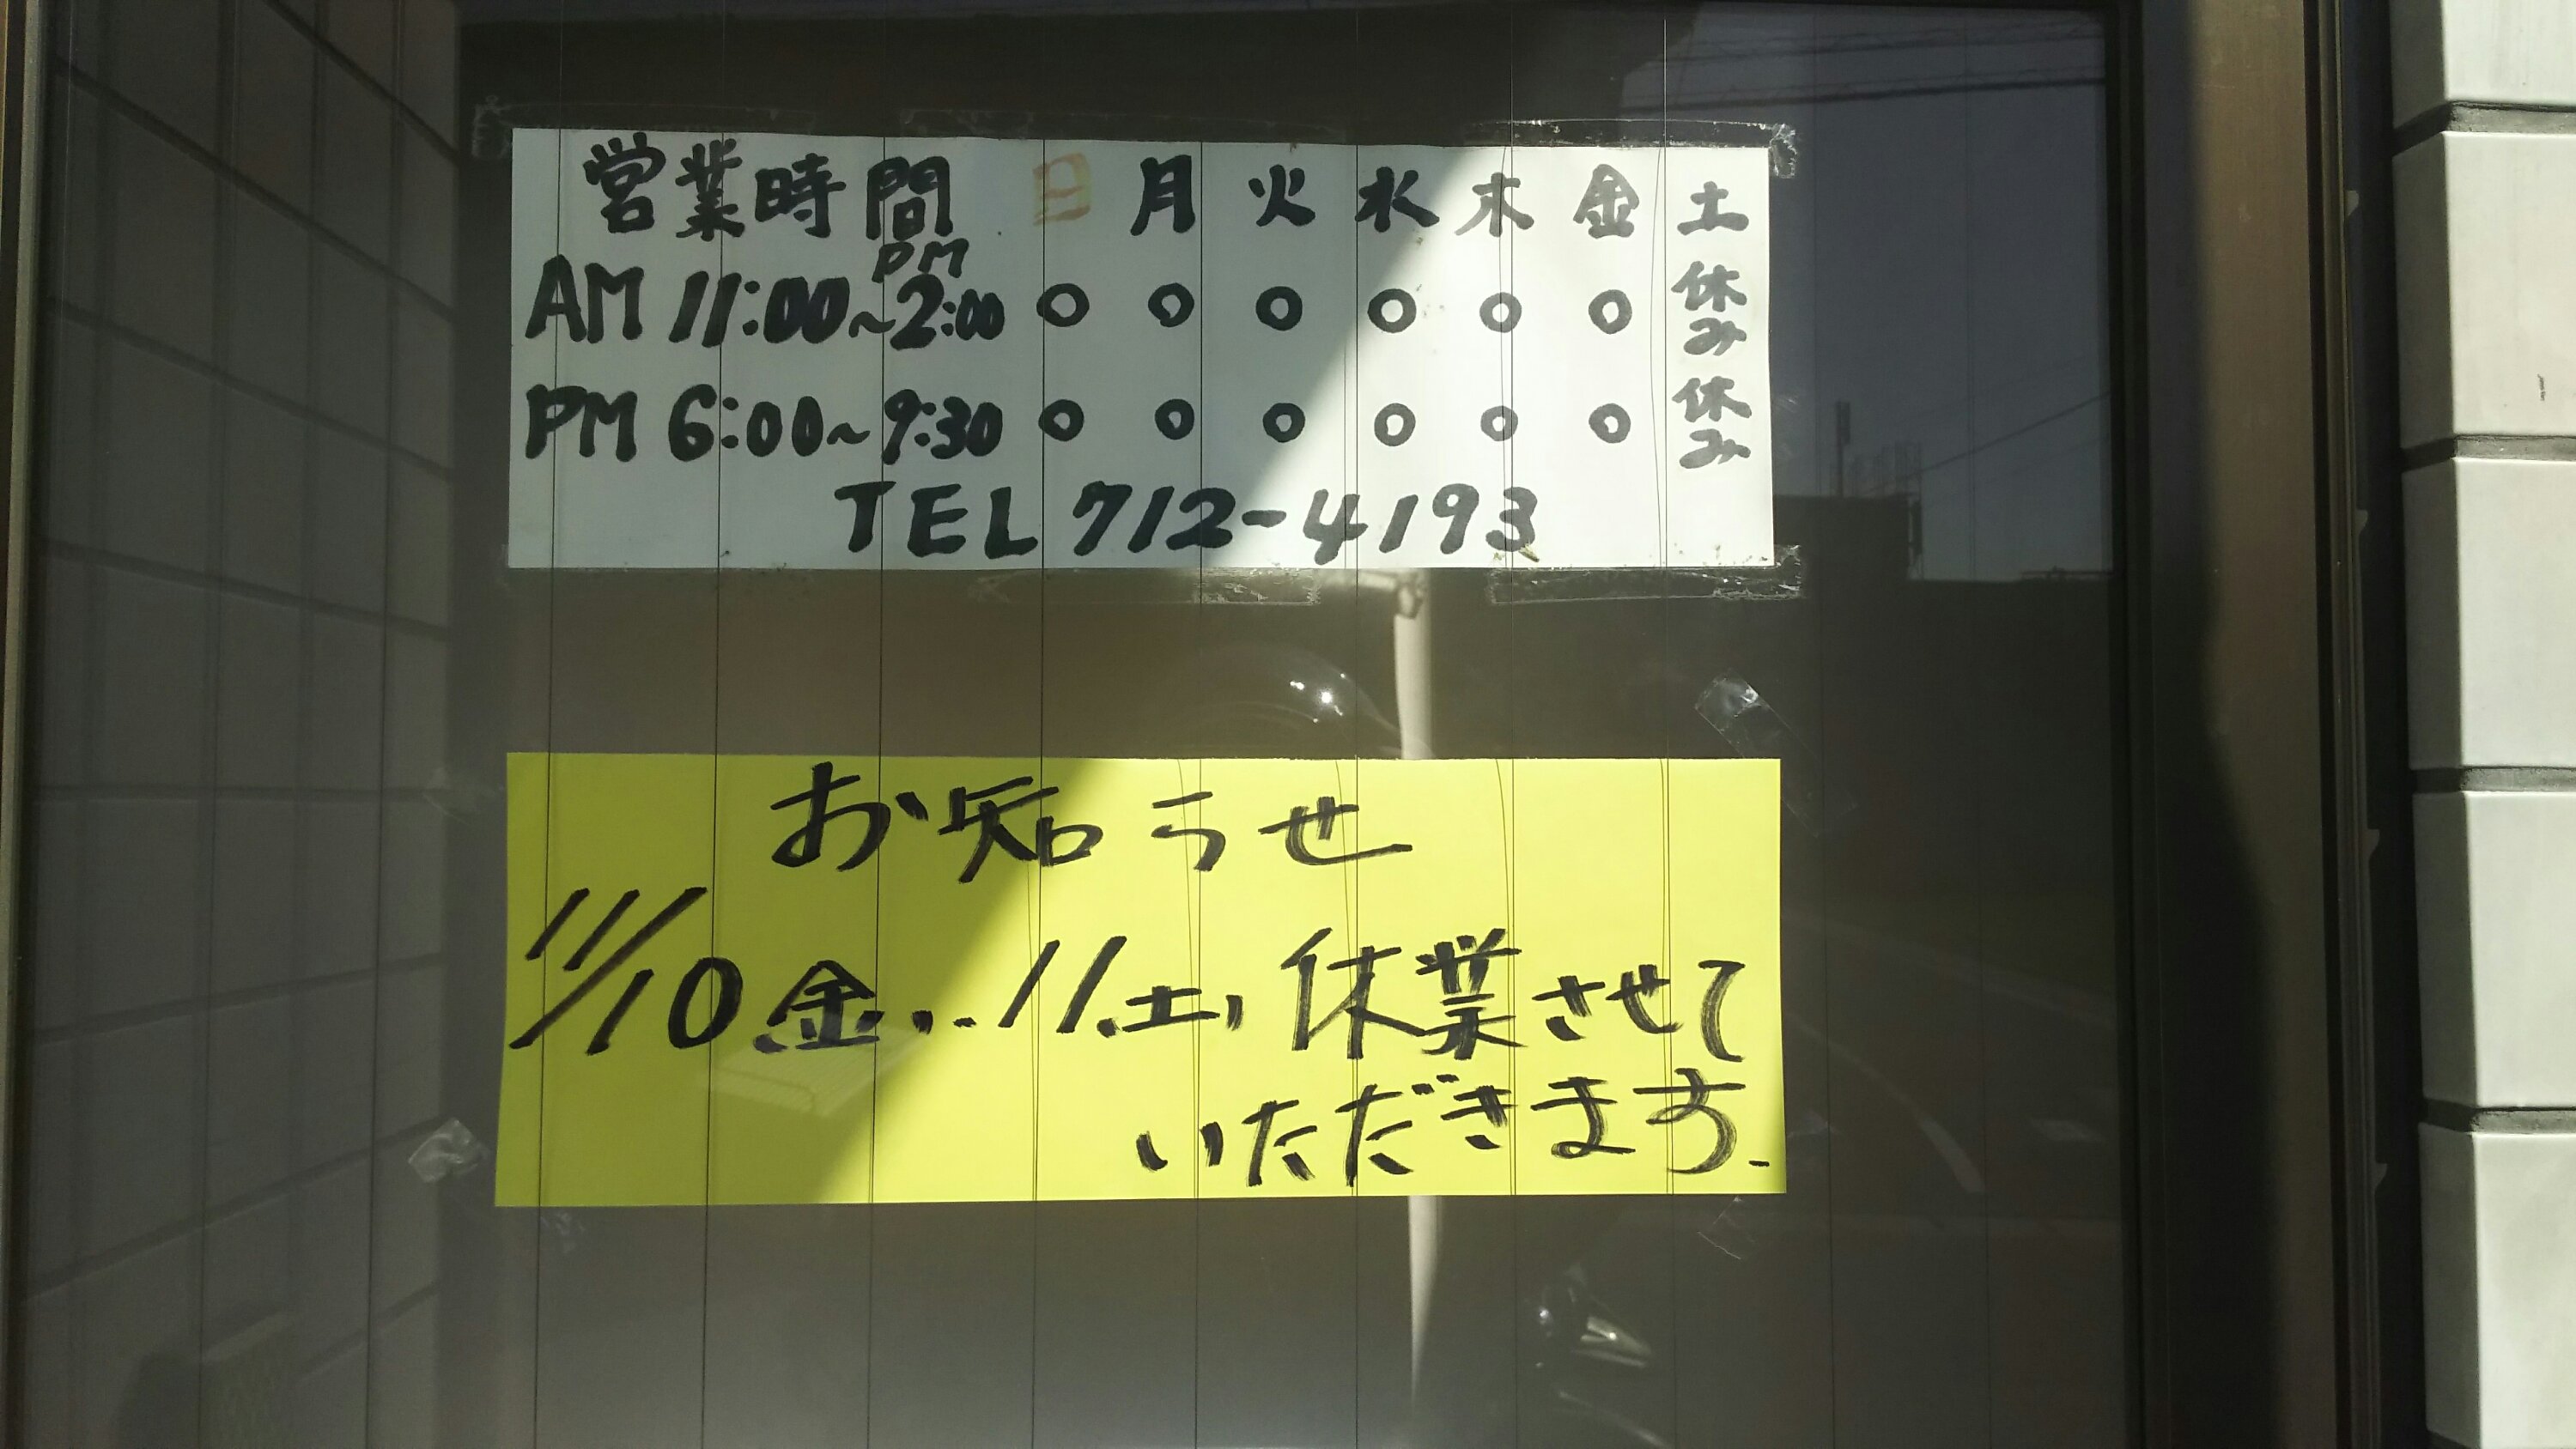 営業時間 日 月 火 水 木 金 土
AM 11:00~PM2:00 ○ ○ ○ ○ ○ ○ 休み
PM 6:00~9:30 ○ ○ ○ ○ ○ ○ 休み
TEL 712-4193
お知らせ
11/10金、11土、休業させて
いただきます.